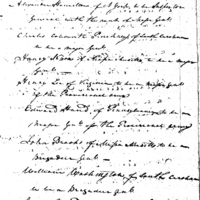 Alexander Hamilton of N York to be Inspector
General with the rank of Major Genl
Charles Cotesworth Pinckney of South Carolina
to be a Major Genl
Henry Knox of Massachusetts to be a Major
Genl
Henry Lee of Virginia to be a Major Genl
of the Provisional army
Edward Hand of Pennsylvania to be a
Major Genl for the Provisional army
John Brooks of Massachusetts to be a
Brigadier Genl
William Washington of South Carolina
to be a Brigadier Genl